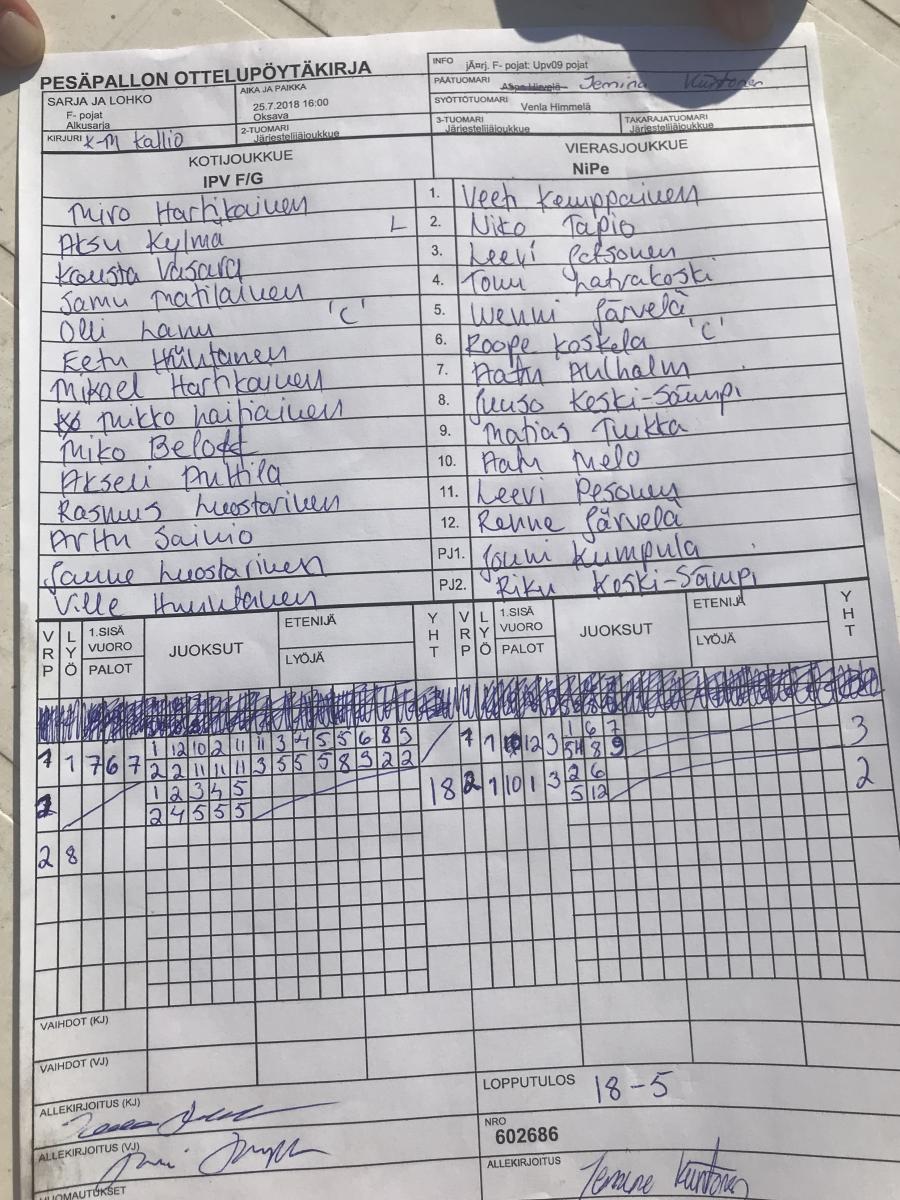 PESÄPALLON OTTELUPÖYTÄKIRJA
INFO jÄ¤rj. F- pojat: Upv09 pojat
PÄÄTUOMARI Jemina Kuntonen
SARJA JA LOHKO
F- pojat
Alkusarja
AIKA JA PAIKKA
25.7.2018 16:00
Oksava
SYÖTTÖTUOMARI Venla Himmelä
KIRJURI K-M Kallio
2-TUOMARI
Järjestelijäjoukkue
3-TUOMARI
Järjestelijäjoukkue
TAKARAJATUOMARI
Järjestelijäjoukkue
KOTIJOUKKUE
IPV F/G
VIERASJOUKKUE
NiPe
Miro Hartikainen 1. Veeti Kemppainen
Atsu Kylmä L 2. Niko Tapio
Kousta Vasara 3. Leevi
Samu Matilainen 4. Tomi Latvakoski
Olli Lamu 'C' 5. Wenni Järvelä
Eetu Huuhtanen 6. Roope Koskela 'C'
Mikael Hartikainen 7. Aatu Aulholm
Mikko 8. Juuso Keski-Sämpi
Miko 9. Matias Tuikka
Akseli Anttila 10. Aatu Melo
Rasmus Luostarinen 11. Leevi Pesonen
Arttu Sainio 12. Renne Järvelä
Sanne Luostarinen PJ1. Jouni Kumpula
Ville Huuhtanen PJ2. Riku Keski-Sämpi
VRP LYÖ 1.SISÄ VUORO PALOT JUOKSUT ETENIJÄ LYÖJÄ YHT VRP LYÖ 1.SISÄ VUORO PALOT JUOKSUT ETENIJÄ LYÖJÄ YHT
1 1 7 6 7 1 12 10 2 11 11 3 4 5 5 6 8 9 1 1 12 3 1 6 7 3
2 2 11 11 11 3 5 5 5 8 9 2 2 5 4 8 9
2 1 2 3 4 5 18 2 1 10 1 3 2 6 2
2 4 5 5 5 5 12
2 8
VAIHDOT (KJ)
VAIHDOT (VJ)
LOPPUTULOS 18-5
ALLEKIRJOITUS (KJ)
NRO
602686
ALLEKIRJOITUS (VJ)
ALLEKIRJOITUS Jemina Kuntonen
HUOMAUTUKSET